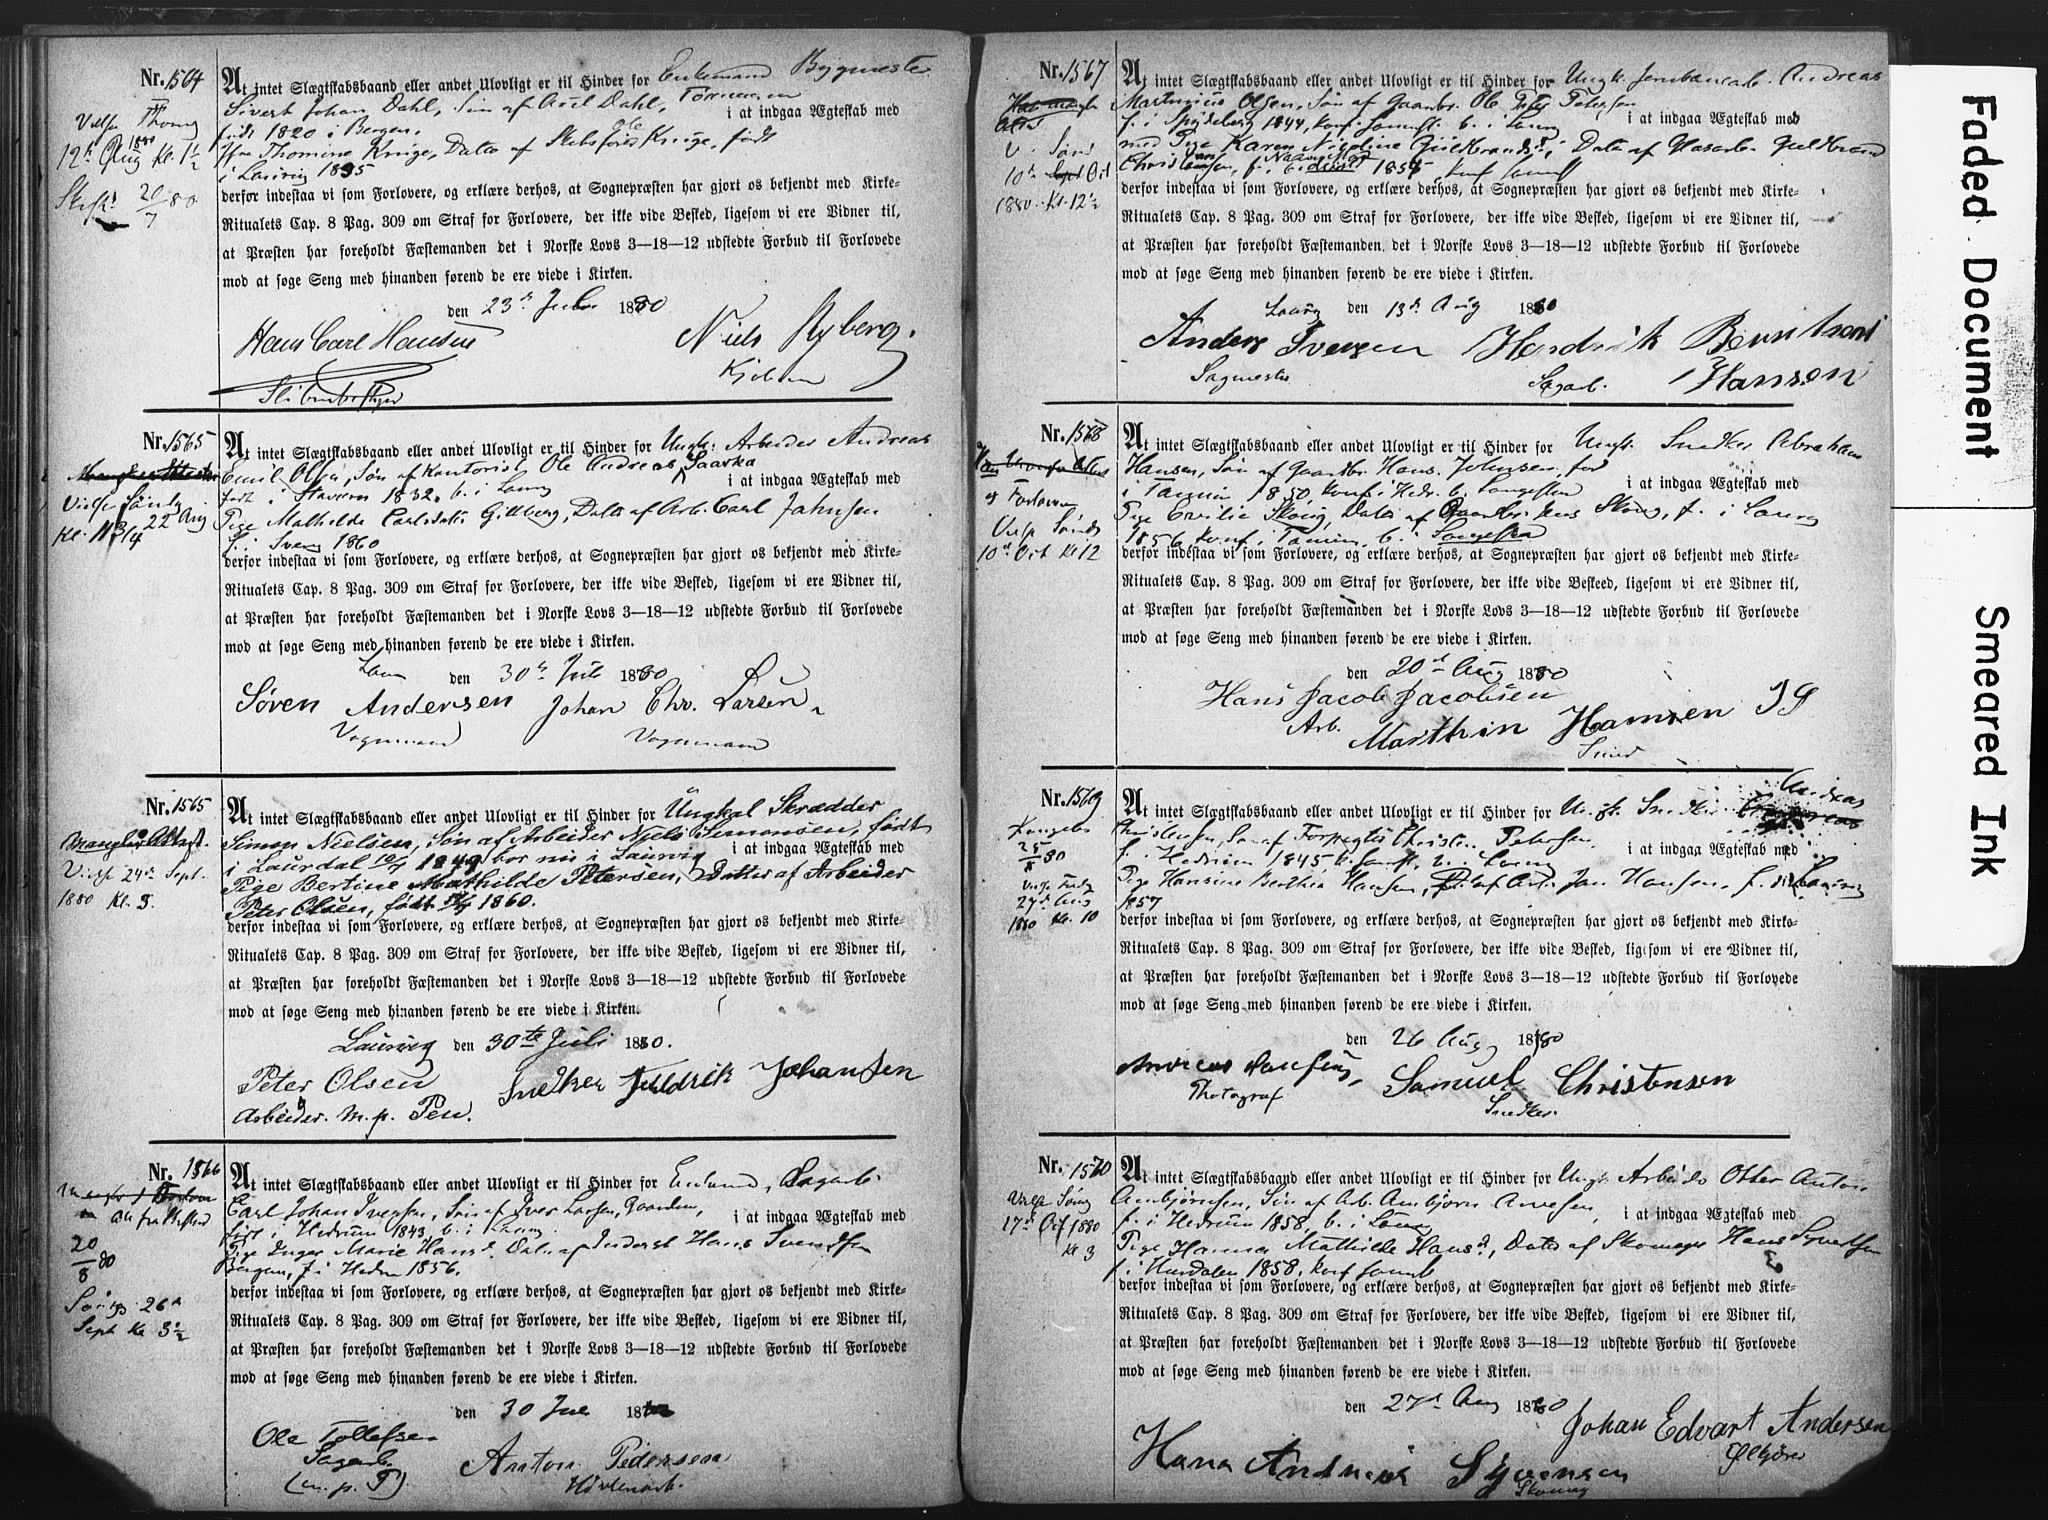 Nr. 1564
At intet Slægtskabsbaand eller andet Ulovligt er til Hinder for Enkemand Bygmester
Sivert Johan Dahl, Søn af Dahl,
i at indgaa Ægteskab med
født 1820 i Bergen.
Thomine Krüge, Datter af Krüge, født
i Laurvig 1835
12te Aug Kl. 1½
1880
20/7 80
derfor indestaa vi som Forlovere, og erklære derhos, at Sognepræsten har gjort os bekjendt med Kirke-
Ritualets Cap. 8 Pag. 309 om Straf for Forlovere, der ikke vide Besked, ligesom vi ere Vidner til,
at Præsten har foreholdt Fæstemanden det i Norske Lovs 3—18—12 udstedte Forbud til Forlovede
mod at søge Seng med hinanden førend de ere viede i Kirken.
den 23de Juli 1880
Hans Carl Hansen Niels Ryberg.
Nr. 1565
At intet Slægtskabsbaand eller andet Ulovligt er til Hinder for Ungk. Arbeider Andreas
Emil Olsen, Søn af Kontorist Ole Andreas
i at indgaa Ægteskab med
født i Stavern 1832, b. i Laurv
Pige Mathilde Carlsdatter Gillberg, Datter af Arb. Carl Jahnsen
f. i Sverig 1860
22 Aug
Kl. 11 3/4
derfor indestaa vi som Forlovere, og erklære derhos, at Sognepræsten har gjort os bekjendt med Kirke-
Ritualets Cap. 8 Pag. 309 om Straf for Forlovere, der ikke vide Besked, ligesom vi ere Vidner til,
at Præsten har foreholdt Fæstemanden det i Norske Lovs 3—18—12 udstedte Forbud til Forlovede
mod at søge Seng med hinanden førend de ere viede i Kirken.
den 30te Juli 1880
Søren Andersen Johan Chr. Larsen
Vognmand Vognmand
Nr. 1565
At intet Slægtskabsbaand eller andet Ulovligt er til Hinder for Ungkal Skrædder
Simon Nielsen, Søn af Arbeider Niels Simonsen, født
i at indgaa Ægteskab med
i Laurdal 1849 bor nu i Laurvig
Pige Bertine Mathilde Petersen, Datter af Arbeider
Peter Olsen, født 1860.
Mangler Attest.
Vielse 24de Sept.
1880 Kl. 3.
derfor indestaa vi som Forlovere, og erklære derhos, at Sognepræsten har gjort os bekjendt med Kirke-
Ritualets Cap. 8 Pag. 309 om Straf for Forlovere, der ikke vide Besked, ligesom vi ere Vidner til,
at Præsten har foreholdt Fæstemanden det i Norske Lovs 3—18—12 udstedte Forbud til Forlovede
mod at søge Seng med hinanden førend de ere viede i Kirken.
Laurvig den 30te Juli 1880.
Peter Olsen Snedker Fredrik Johansen
Arbeider. m. p. Pen.
Nr. 1566
At intet Slægtskabsbaand eller andet Ulovligt er til Hinder for Enkemd, Sagarb.
Carl Johan Iversen, Søn af Iver Larsen,
i at indgaa Ægteskab med
født i Hedrum 1843, b. i Laurv
Pige Inger Marie Hansd. Datter af Inderst Hans Svendsen
Bergan, f. i Hedrm 1856.
20/8 80
26de
Sept Kl 3½
derfor indestaa vi som Forlovere, og erklære derhos, at Sognepræsten har gjort os bekjendt med Kirke-
Ritualets Cap. 8 Pag. 309 om Straf for Forlovere, der ikke vide Besked, ligesom vi ere Vidner til,
at Præsten har foreholdt Fæstemanden det i Norske Lovs 3—18—12 udstedte Forbud til Forlovede
mod at søge Seng med hinanden førend de ere viede i Kirken.
den 30 Juli
Ole Tollefsen
Sagarb.
(m. p. P.)
Anton Pedersen
Høvlerarb.
Nr. 1567
At intet Slægtskabsbaand eller andet Ulovligt er til Hinder for Ungk. Jernbanearb. Andreas
Martinius Olsen, Søn af Gaardbr. Ole Petersen
i at indgaa Ægteskab med
f. i Spydeberg 1844, konf. samst. b. i Laurv
med Pige Karen Nicoline Guldbrandsd., Datter af Guldbrand
Christensen, f. i Eidskog 1854, konf samst
10de Oct
1880 Kl. 12½
derfor indestaa vi som Forlovere, og erklære derhos, at Sognepræsten har gjort os bekjendt med Kirke-
Ritualets Cap. 8 Pag. 309 om Straf for Forlovere, der ikke vide Besked, ligesom vi ere Vidner til,
at Præsten har foreholdt Fæstemanden det i Norske Lovs 3—18—12 udstedte Forbud til Forlovede
mod at søge Seng med hinanden førend de ere viede i Kirken.
Laurv den 13de Aug 1880
Anders Iversen Hendrik Berntsen
Sagmester Sagarb. Hansen
Nr. 1568
At intet Slægtskabsbaand eller andet Ulovligt er til Hinder for Ungk. Snedker Abraham
Hansen, Søn af Gaardbr. Hans Johnsen, fød
i at indgaa Ægteskab med
i Tanum 1850, konf. i Hedr. b. Langesten
Pige Emilie Skoug, Datter af Skoug, f. i Laurv
1856 konf. i Tanum, b. i
og Forlovere
10de Oct Kl 12
derfor indestaa vi som Forlovere, og erklære derhos, at Sognepræsten har gjort os bekjendt med Kirke-
Ritualets Cap. 8 Pag. 309 om Straf for Forlovere, der ikke vide Beskeed, ligesom vi ere Vidner til,
at Præsten har foreholdt Fæstemanden det i Norske Lovs 3—18—12 udstedte Forbud til Forlovede
mod at søge Seng med hinanden førend de ere viede i Kirken.
den 20de Aug 1880
Hans Jacob Jacobsen
Arb. Marthin Hansen
Nr. 1569
At intet Slægtskabsbaand eller andet Ulovligt er til Hinder for Ungk. Snedker Andreas
Christensen, Søn af Forpagter Christen Petersen,
i at indgaa Ægteskab med
f. i Hedrum 1845, k. samst. b. i Laurv
Pige Hansine Berthea Hansen, D. af Arb. Jan Hansen, f. i Laurvig
1857
25/8 80
27de Aug
1880 Kl. 10
derfor indestaa vi som Forlovere, og erklære derhos, at Sognepræsten har gjort os bekjendt med Kirke-
Ritualets Cap. 8 Pag. 309 om Straf for Forlovere, der ikke vide Besked, ligesom vi ere Vidner til,
at Præsten har foreholdt Fæstemanden det i Norske Lovs 3—18—12 udstedte Forbud til Forlovede
mod at søge Seng med hinanden førend de ere viede i Kirken.
den 26 Aug 1880
Samuel Christensen
Photograf Snedker
Nr. 1570
At intet Slægtskabsbaand eller andet Ulovligt er til Hinder for Ungk Arbeider Otter Anton
Ambjørnsen, Søn af Arb. Ambjørn Arvesen,
i at indgaa Ægteskab med
f. i Hedrum 1858, b. i Laurv
Pige Hanna Mathilde Hansd., Datter af Skomager Hans Syvertsen
f. i Hurdalen 1858, konf samst
17de Oct 1880
Kl 3
derfor indestaa vi som Forlovere, og erklære derhos, at Sognepræsten har gjort os bekjendt med Kirke-
Ritualets Cap. 8 Pag. 309 om Straf for Forlovere, der ikke vide Besked, ligesom vi ere Vidner til,
at Præsten har foreholdt Fæstemanden det i Norske Lovs 3—18—12 udstedte Forbud til Forlovede
mod at søge Seng med hinanden førend de ere viede i Kirken.
den 27de Aug 1880
Johan Edvart Andersen
Hans
Skomag
Faded Document Smeared Ink